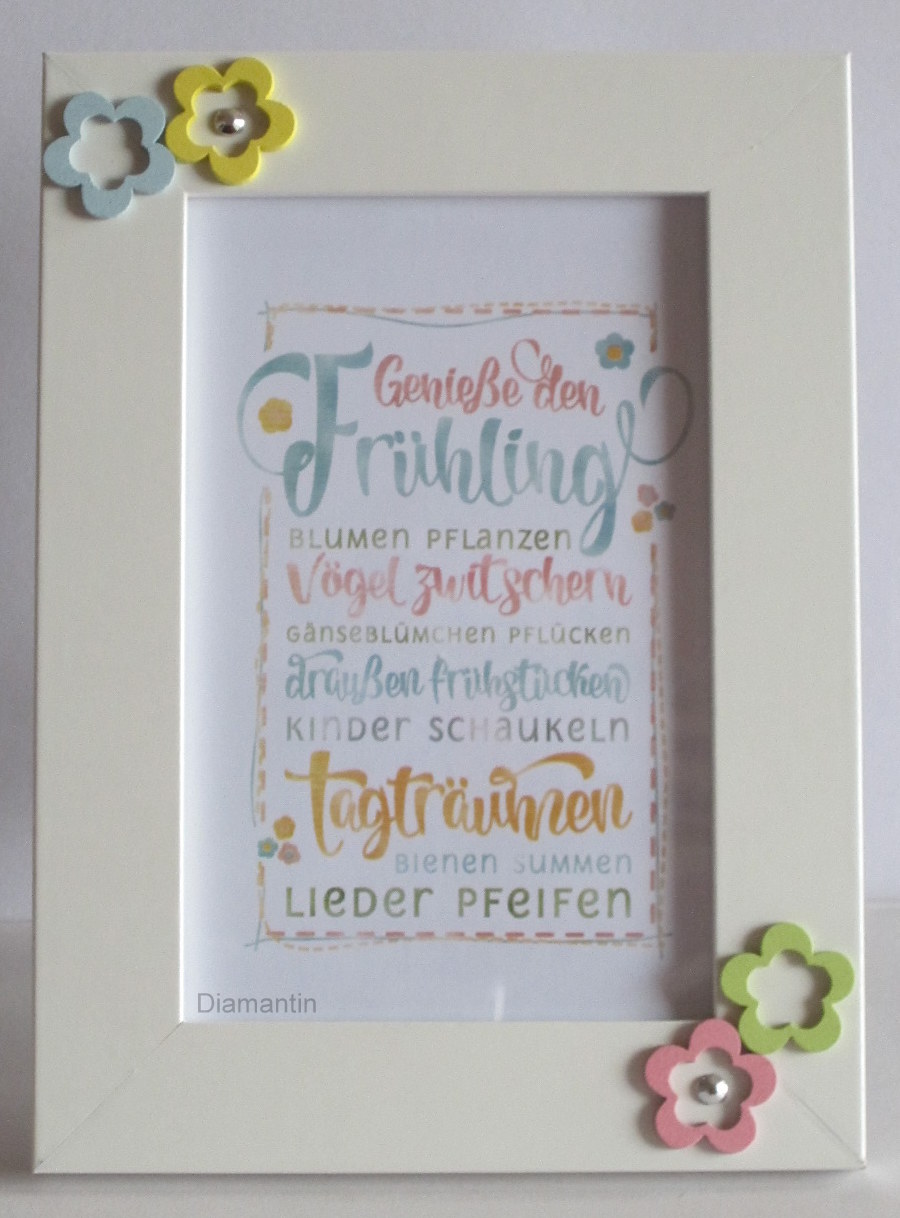 Genieße den
Frühling
BLUMEN PFLANZEN
Vögel zwitschern
GÄNSEBLÜMCHEN PFLÜCKEN
draußen frühstücken
KINDER SCHAUKELN
tagträumen
BIENEN SUMMEN
LIEDER PFEIFEN
Diamantin